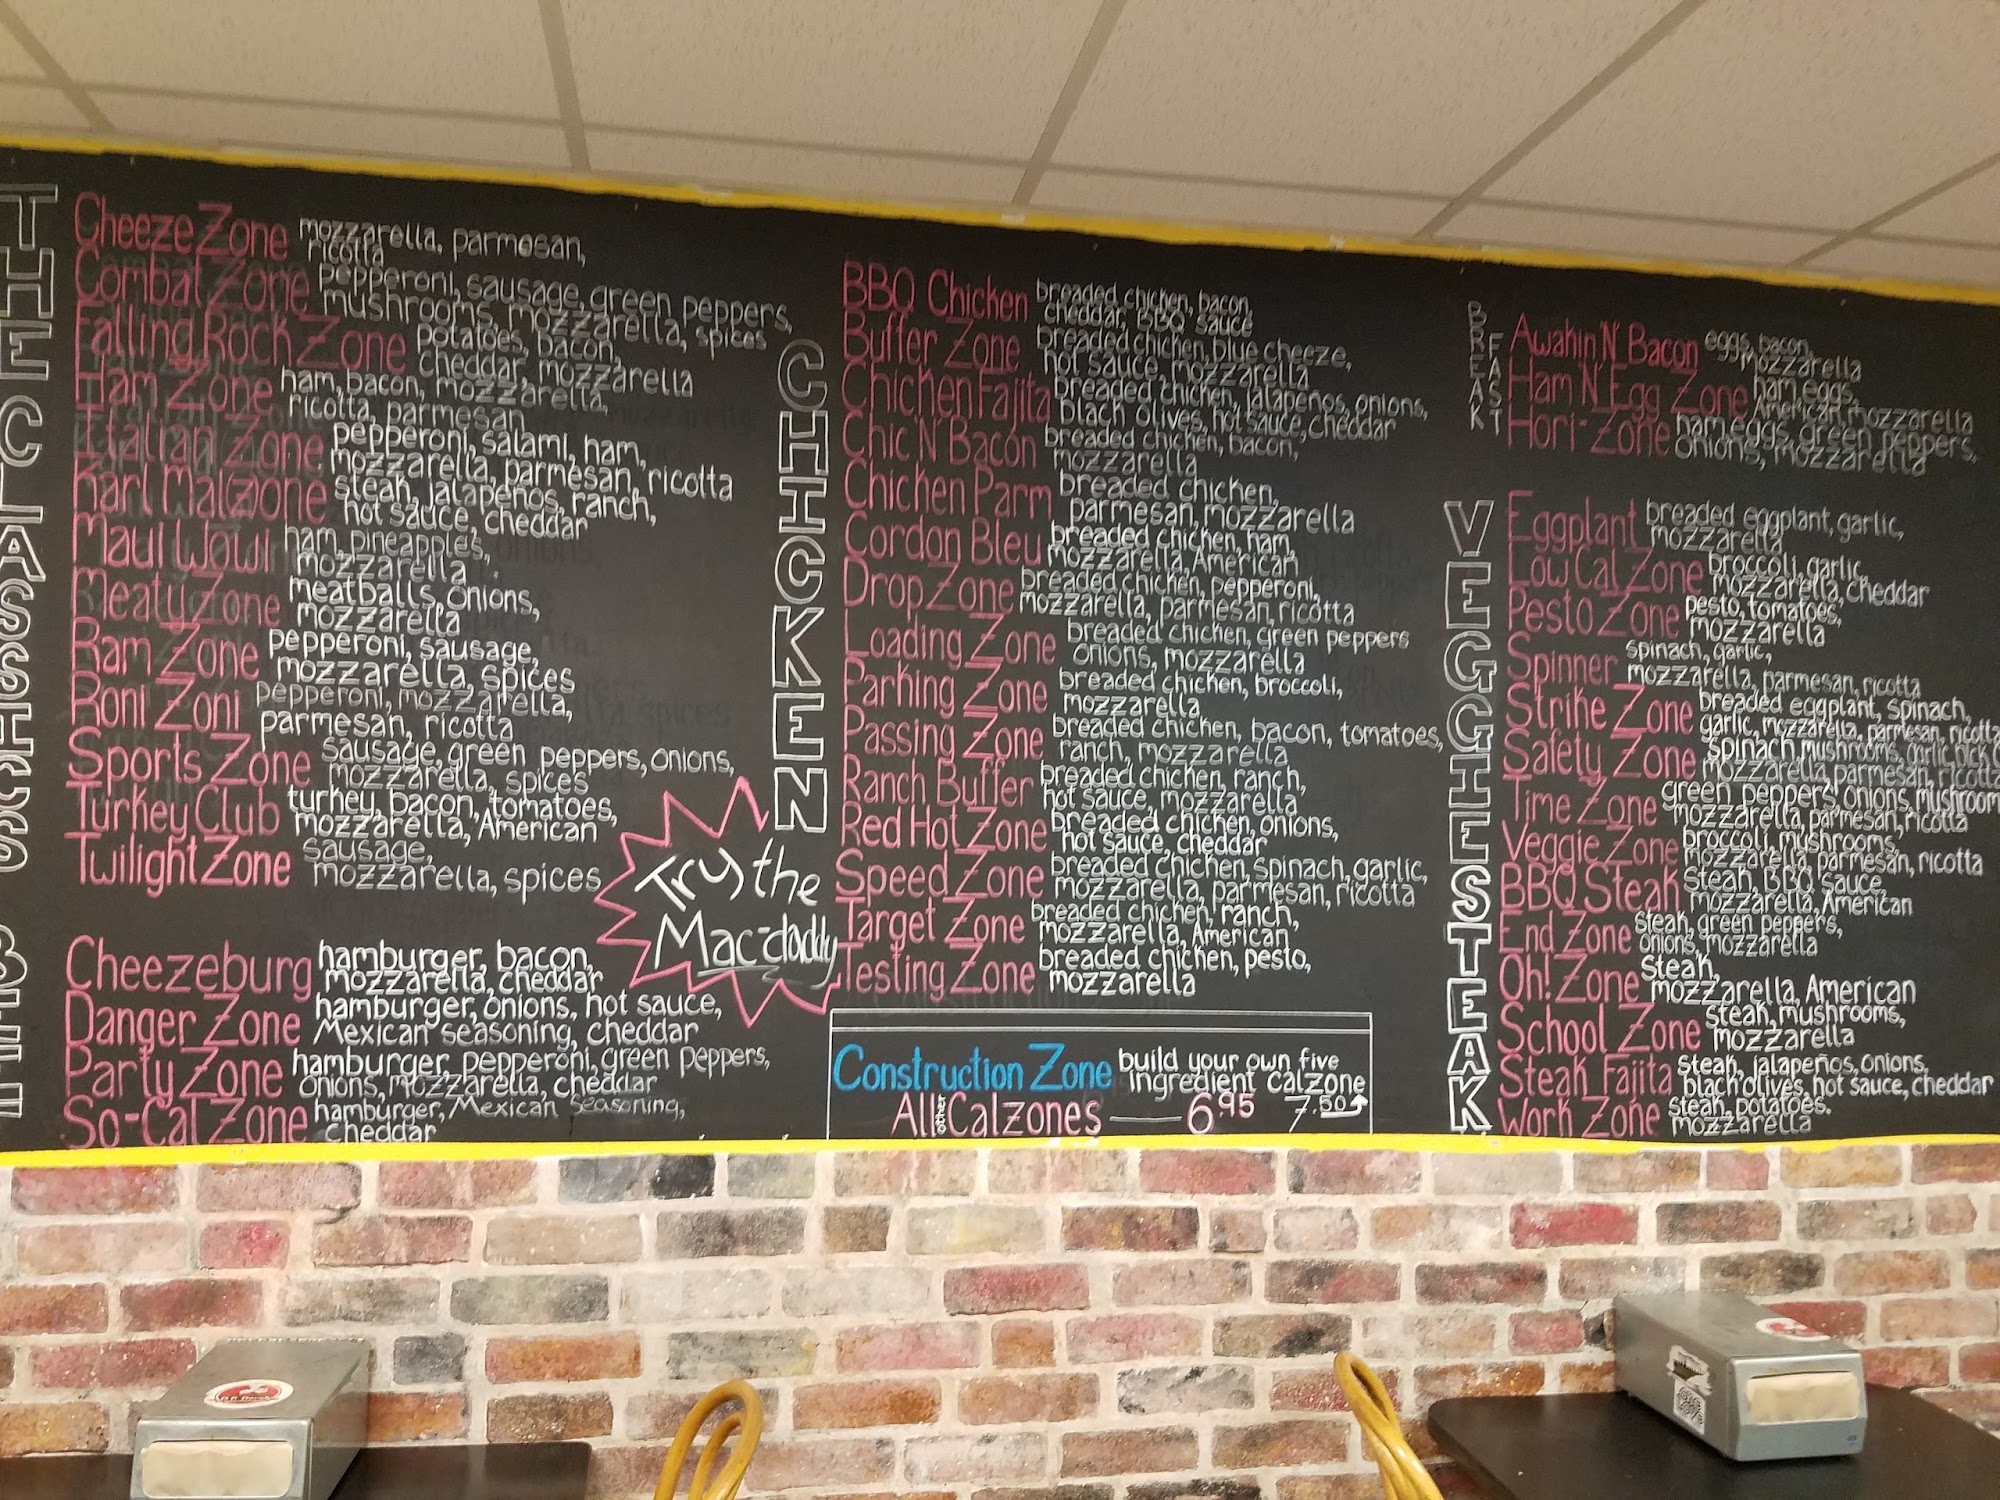 THE CLASSICS
Cheeze Zone mozzarella, parmesan,
ricotta
Combat Zone pepperoni, sausage, green peppers,
mushrooms, mozzarella, spices
Falling Rock Zone potatoes, bacon,
cheddar, mozzarella
Ham Zone ham, bacon, mozzarella,
ricotta, parmesan
Italian Zone pepperoni, salami, ham,
mozzarella, parmesan, ricotta
Karl Malzone steak, jalapeños, ranch,
hot sauce, cheddar
Maui Wowi ham, pineapples,
mozzarella
Meaty Zone meatballs, onions,
mozzarella
Ram Zone pepperoni, sausage,
mozzarella, spices
Roni Zoni pepperoni, mozzarella,
parmesan, ricotta
Sports Zone sausage, green peppers, onions,
mozzarella, spices
Turkey Club turkey, bacon, tomatoes,
mozzarella, American
Twilight Zone sausage,
mozzarella, spices
Cheezeburg hamburger, bacon,
mozzarella, cheddar
Danger Zone hamburger, onions, hot sauce,
Mexican seasoning, cheddar
Party Zone hamburger, pepperoni, green peppers,
onions, mozzarella, cheddar
So-Cal Zone hamburger, Mexican seasoning,
cheddar
Try the
Mac-daddy
CHICKEN
BBQ Chicken breaded chicken, bacon,
cheddar, BBQ sauce
Buffer Zone breaded chicken, blue cheeze,
hot sauce, mozzarella
Chicken Fajita breaded chicken, jalapeños, onions,
black olives, hot sauce, cheddar
Chic 'N' Bacon breaded chicken, bacon,
mozzarella
Chicken Parm breaded chicken,
parmesan, mozzarella
Cordon Bleu breaded chicken, ham,
mozzarella, American
Drop Zone breaded chicken, pepperoni,
mozzarella, parmesan, ricotta
Loading Zone breaded chicken, green peppers
onions, mozzarella
Parking Zone breaded chicken, broccoli,
mozzarella
Passing Zone breaded chicken, bacon, tomatoes,
ranch, mozzarella
Ranch Buffer breaded chicken, ranch,
hot sauce, mozzarella
Red Hot Zone breaded chicken, onions,
hot sauce, cheddar
Speed Zone breaded chicken, spinach, garlic,
mozzarella, parmesan, ricotta
Target Zone breaded chicken, ranch,
mozzarella, American
Testing Zone breaded chicken, pesto,
mozzarella
Construction Zone build your own five
ingredient calzone
All other Calzones 6.95 7.50
BREAKFAST
Awakin 'N' Bacon eggs, bacon,
mozzarella
Ham 'N' Egg Zone ham, eggs,
American, mozzarella
Hori-Zone ham, eggs, green peppers,
onions, mozzarella
VEGGIE
Eggplant breaded eggplant, garlic,
mozzarella
Low Cal Zone broccoli, garlic,
mozzarella, cheddar
Pesto Zone pesto, tomatoes,
mozzarella
Spinner spinach, garlic,
mozzarella, parmesan, ricotta
Strike Zone breaded eggplant, spinach,
garlic, mozzarella, parmesan, ricotta
Safety Zone spinach, mushrooms, garlic,
mozzarella, parmesan, ricotta
Time Zone green peppers, onions, mushroom
mozzarella, parmesan, ricotta
Veggie Zone broccoli, mushrooms,
mozzarella, parmesan, ricotta
STEAK
BBQ Steak steak, BBQ sauce,
mozzarella, American
End Zone steak, green peppers,
onions, mozzarella
Oh! Zone steak,
mozzarella, American
School Zone steak, mushrooms,
mozzarella
Steak Fajita steak, jalapeños, onions,
black olives, hot sauce, cheddar
Work Zone steak, potatoes,
mozzarella